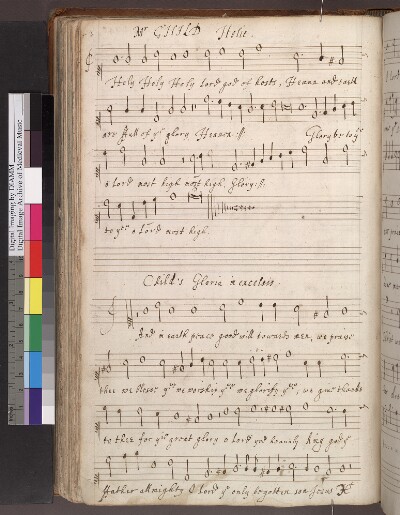 Mr CHILD
Holy Holy Holy Lord god of hosts, Heaven and earth
are full of ye glory Heaven :||: Glory be to ye
o Lord most high most high. Glory :||:
to ye o Lord most high.
Child's Gloria in excelsis.
And in earth peace good will towards men, we praise
thee we blesse ye we worship ye we glorify ye, we give thanks
to thee for ye great glory o Lord god heavenly King god ye
ffather allmighty O Lord ye only begotten son Jesus
Digital Imaging by DIAMM
Digital Image Archive of Medieval Music